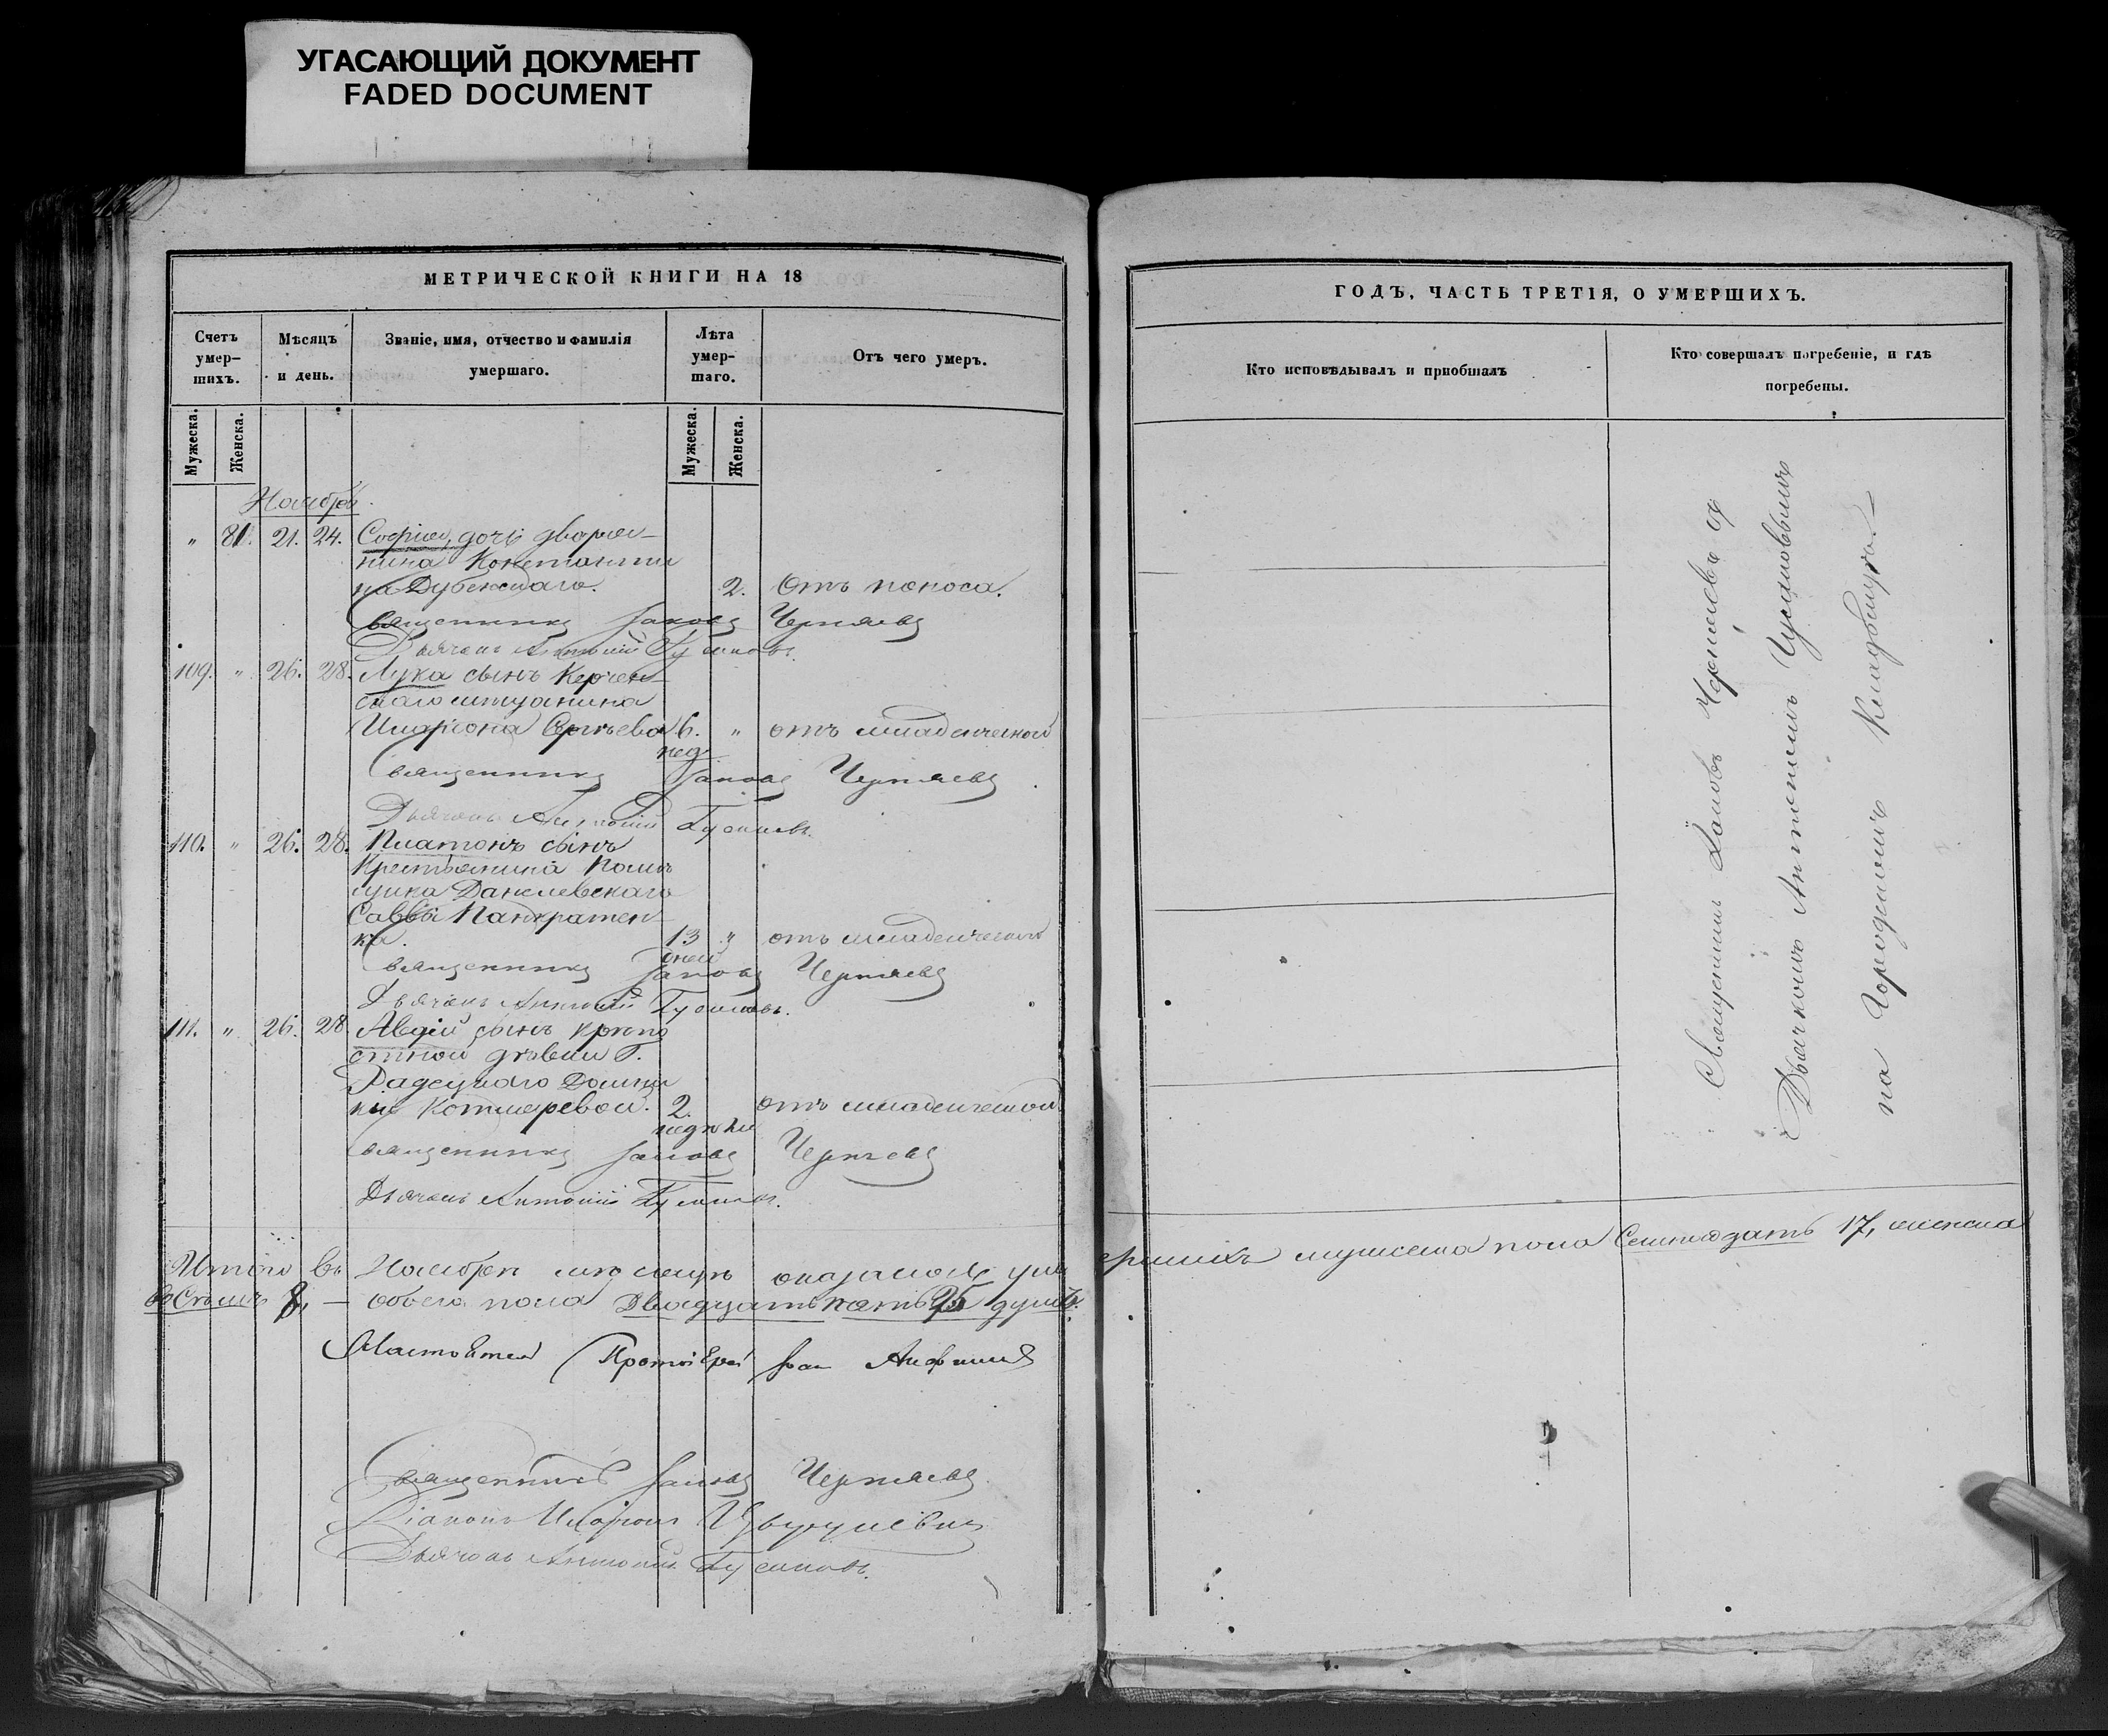 УГАСАЮЩИЙ ДОКУМЕНТ
FADED DOCUMENT
МЕТРИЧЕСКОЙ КНИГИ НА 18
Счетъ умер-шихъ.
Мѣсяцъ и день.
Званіе, имя, отчество и фамилія умершаго.
Лѣта умер-шаго.
Отъ чего умеръ.
Мужеска.
Женска.
Мужеска.
Женска.
Ноябрь.
" 81. 21. 24. Софія, дочь дворя-
нина Константи
на Дубенскаго. 2. Отъ поноса.
Священникъ Іаковъ Черняевъ
Дьячекъ Антоній Гусаковъ.
109. " 26. 28. Лука сынъ Керчен-
скаго мѣщанина
Иларіона Сергѣева 6. " отъ младенческой
нед.
Священникъ Іаковъ Черняевъ
Дьячекъ Антоній
110. " 26. 28. Платонъ сынъ
Крестьянина помѣ
щика Данилевскаго
Саввы Панкратен
ка. 13 " отъ младенческой
дней
Священникъ Іаковъ Черняевъ
Дьячекъ Антоній
111. " 26. 28 Авдій сынъ крѣпо
стной дѣвки Г.
Домни
кіи 2. отъ младенческой
недѣли
Священникъ Іаковъ Черняевъ
Дьячекъ Антоній
Итого въ Ноябрѣ мѣсяцѣ оказалось ум
восемь 8, — обоего пола Двадцать пять 25 душъ.
Настоятель Протоіерей
Священникъ Іаковъ Черняевъ
Діаконъ Иларіонъ
Дьячекъ Антоній
ГОДЪ, ЧАСТЬ ТРЕТІЯ, О УМЕРШИХЪ.
Кто исповѣдывалъ и пріобщалъ
Кто совершалъ погребеніе, и гдѣ погребены.
Священникъ Іаковъ Черняевъ съ
Дьячкомъ Антоніемъ
на Городскомъ Кладбищѣ.
ершихъ мужеска пола Семнадцать 17, женска